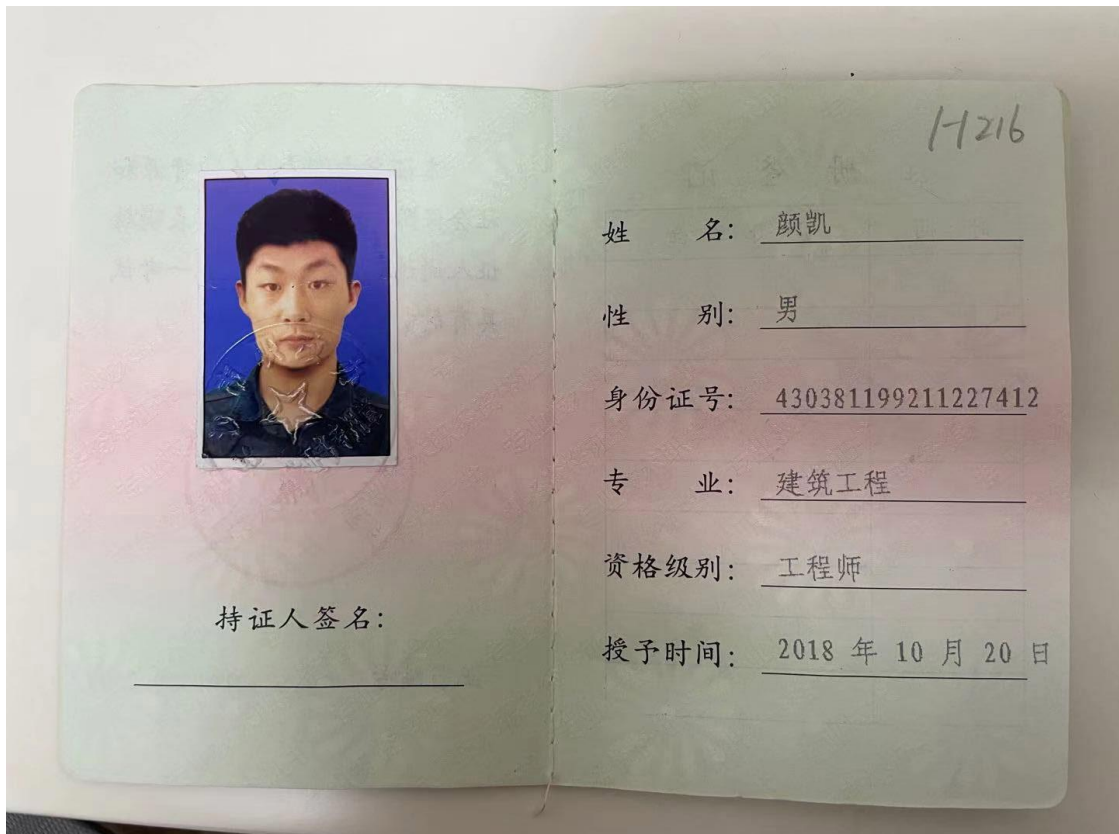 1-1216
姓 名： 颜凯
性 别： 男
身份证号： 430381199211227412
专 业： 建筑工程
资格级别： 工程师
授予时间： 2018 年 10 月 20 日
持证人签名：